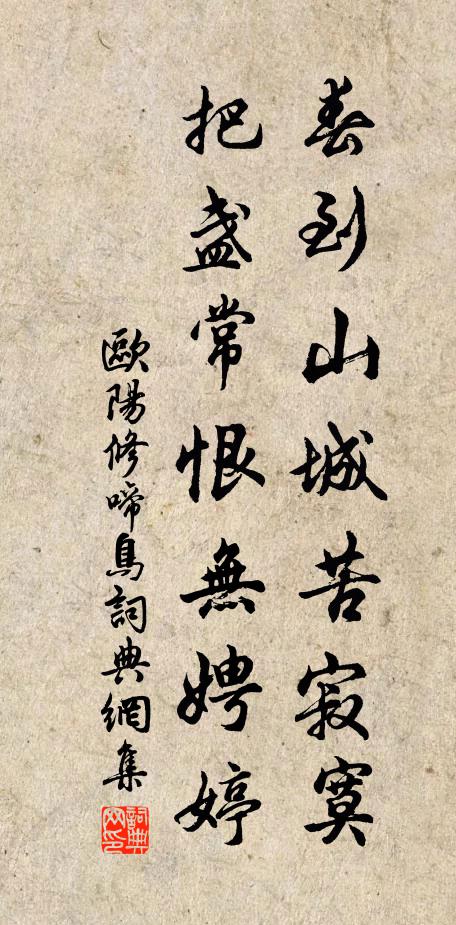 春到山城苦寂寞
把盞常恨無娉婷
歐陽修啼鳥詞典網集
詞典網印